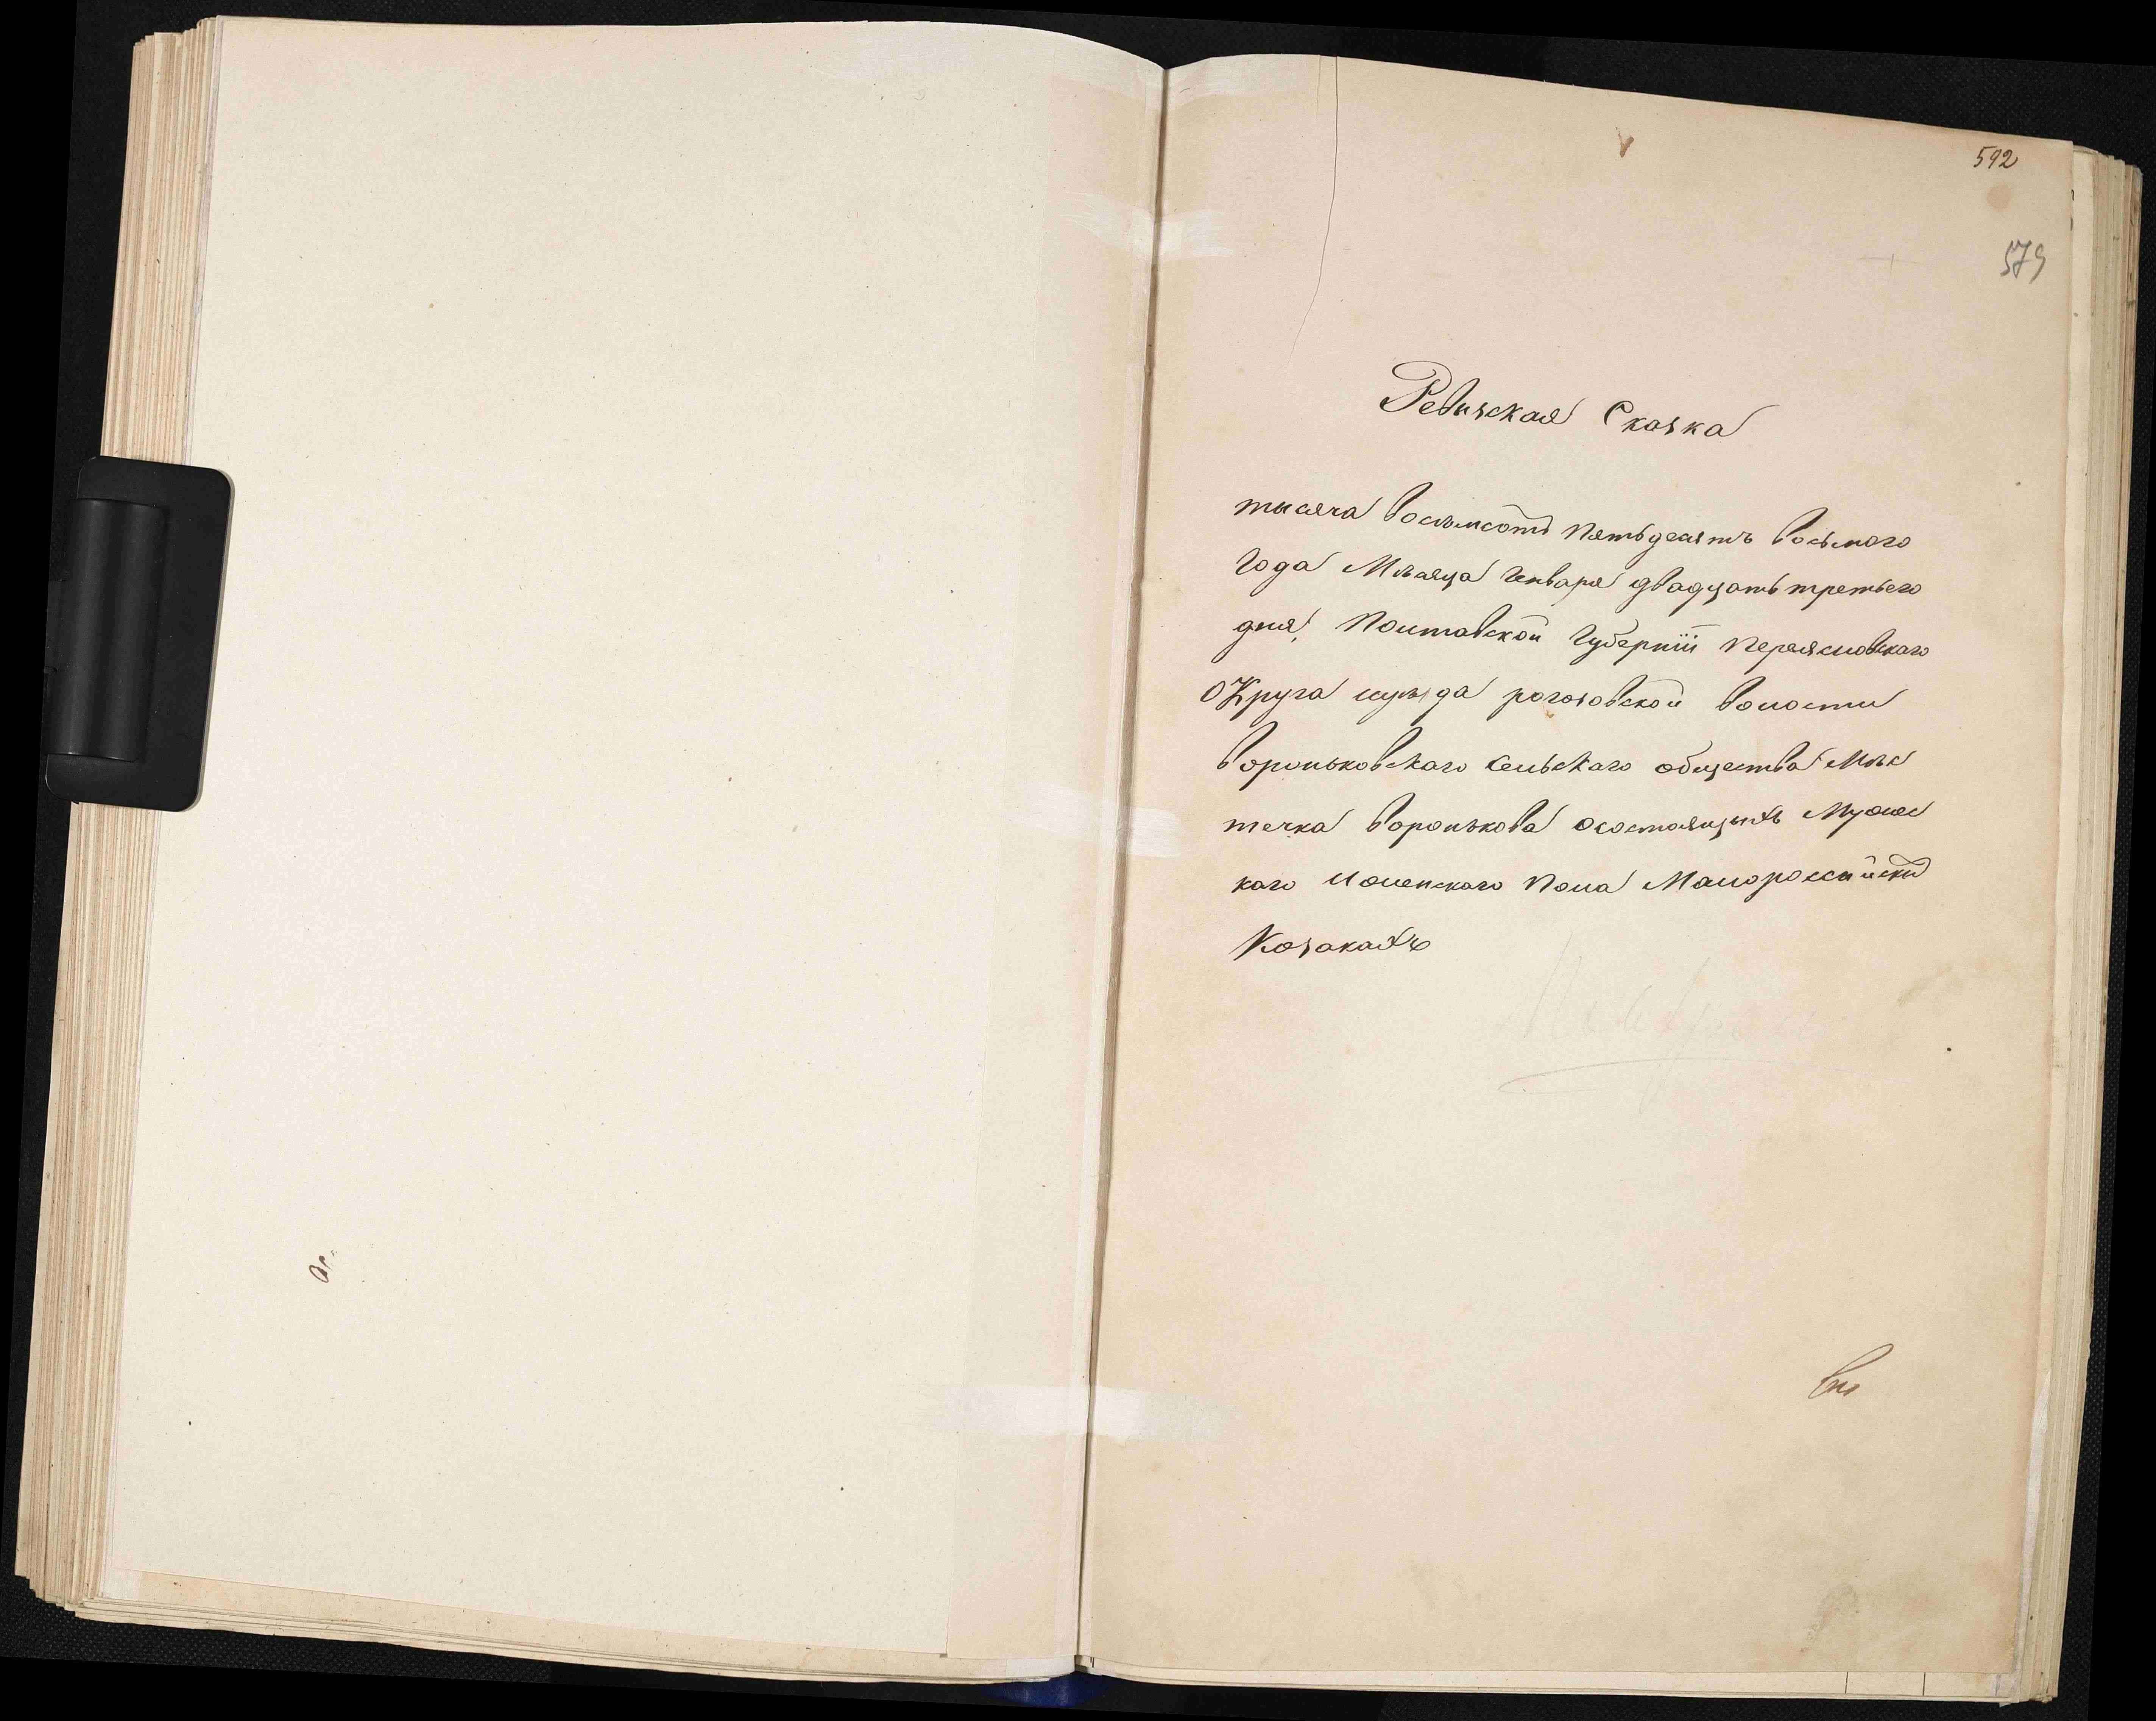 592
579
Ревизская Сказка
тысяча восемьсотъ пятьдесятъ восьмого
года Мѣсяца Генваря двадцать третьего
дня, Полтавской Губерніи Переясловскаго
Округа иуѣзда рогозовской волости
вороньковскаго сельскаго общества Мѣс
течка воронькова осостоящихъ Мужес
каго иженскаго пола Малороссійскихъ
Козакахъ